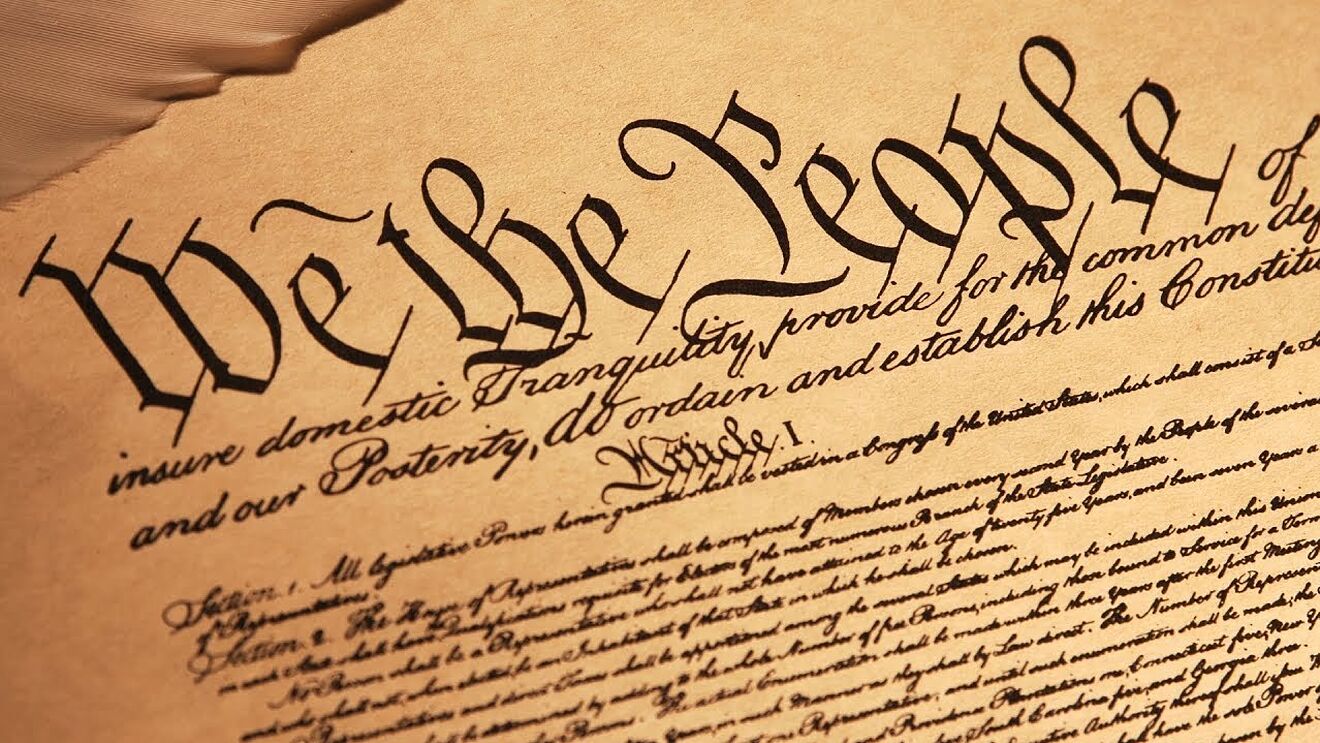 We the People of
insure domestic Tranquility, provide for the common def
and our Posterity, do ordain and establish this Constitu
Article I.
Section. 1. All legislative Powers herein granted shall be vested in a Congress of the United States, which shall consist of a Se
of Representatives.
Section. 2. The House of Representatives shall be composed of Members chosen every second Year by the People of the several
in each State shall have Qualifications requisite for Electors of the most numerous Branch of the State Legislature.
No Person shall be a Representative who shall not have attained to the Age of twenty five Years, and been seven Years a
and who shall not, when elected, be an Inhabitant of that State in which he shall be chosen.
Representatives and direct Taxes shall be apportioned among the several States which may be included within this Union
shall be determined by adding to the whole Number of free Persons, including those bound to Service for a Term
Persons. The actual Enumeration shall be made within three Years after the first Meeting
Years, in such Manner as they shall by Law direct. The Number of Represent
one Representative; and until such enumeration shall be made, the
and Providence Plantations one, Connecticut five, New Y
South Carolina five, and Georgia three.
Executive Authority thereof shall issue
shall have the sole Power o